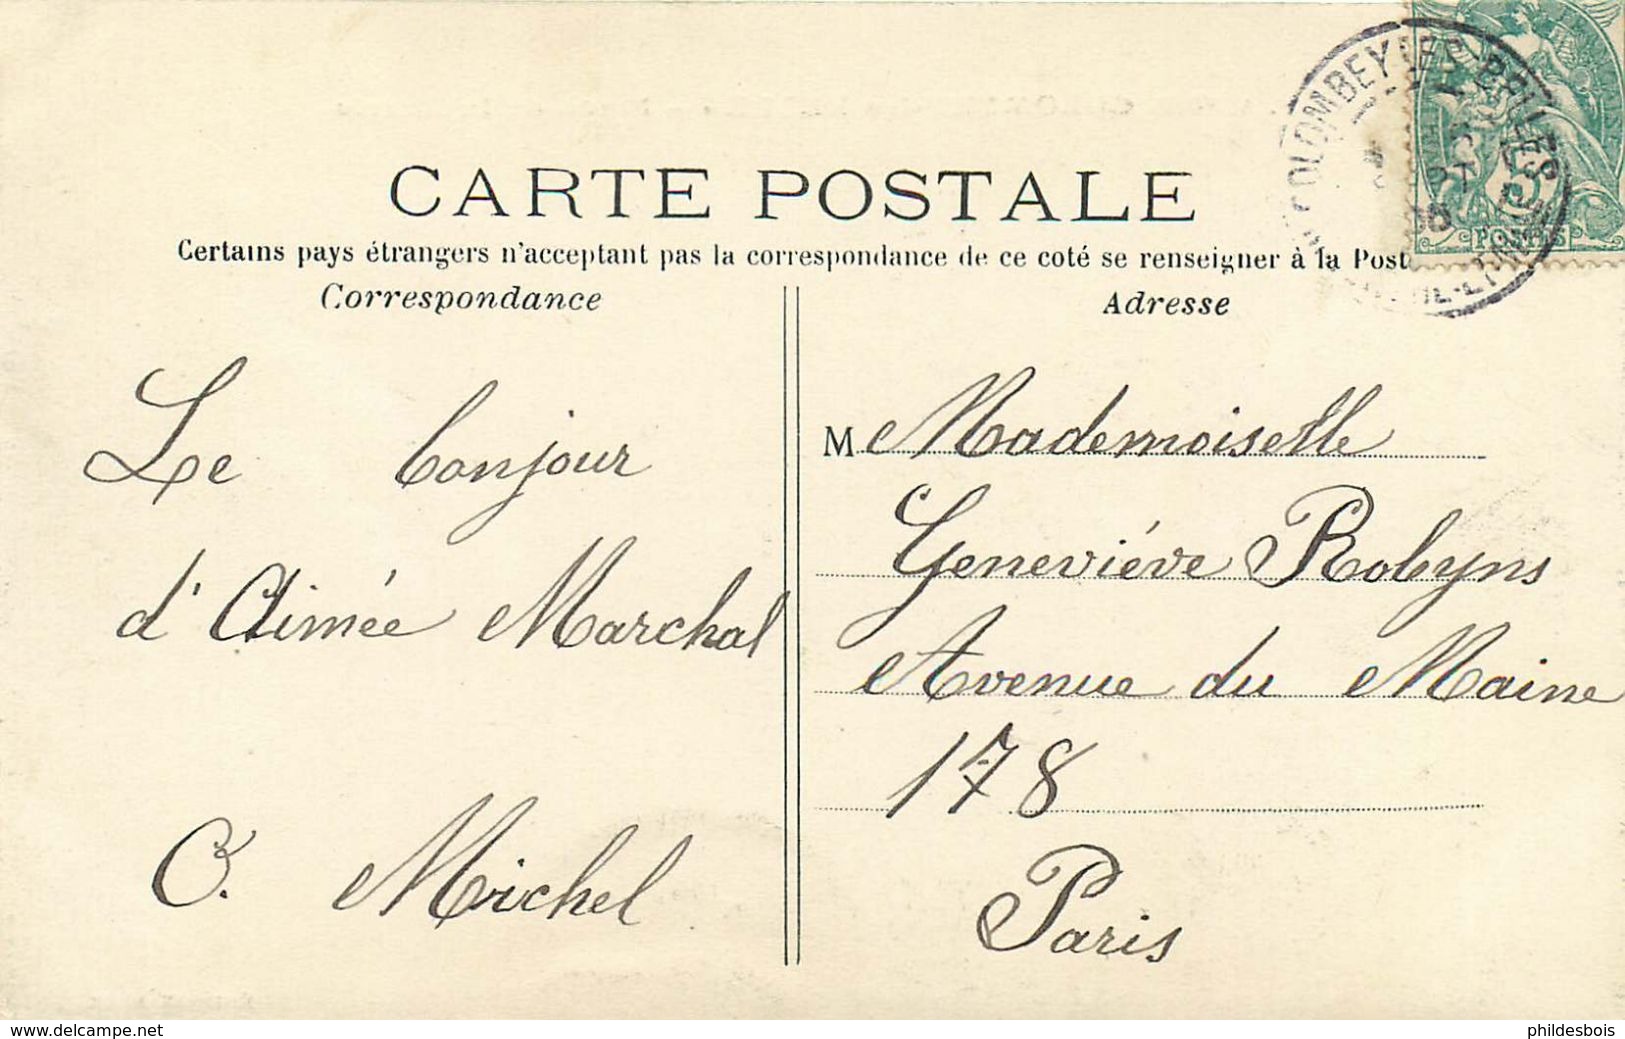 CARTE POSTALE
Certains pays étrangers n'acceptant pas la correspondance de ce coté se renseigner à la Post
Correspondance
Le bonjour
d'Aimée Marchal
C. Michel
Adresse
M Mademoiselle
Geneviéve Robyns
Avenue du Maine
178
Paris
COLOMBEY LES BELLES
POSTES
www.delcampe.net
phildesbois